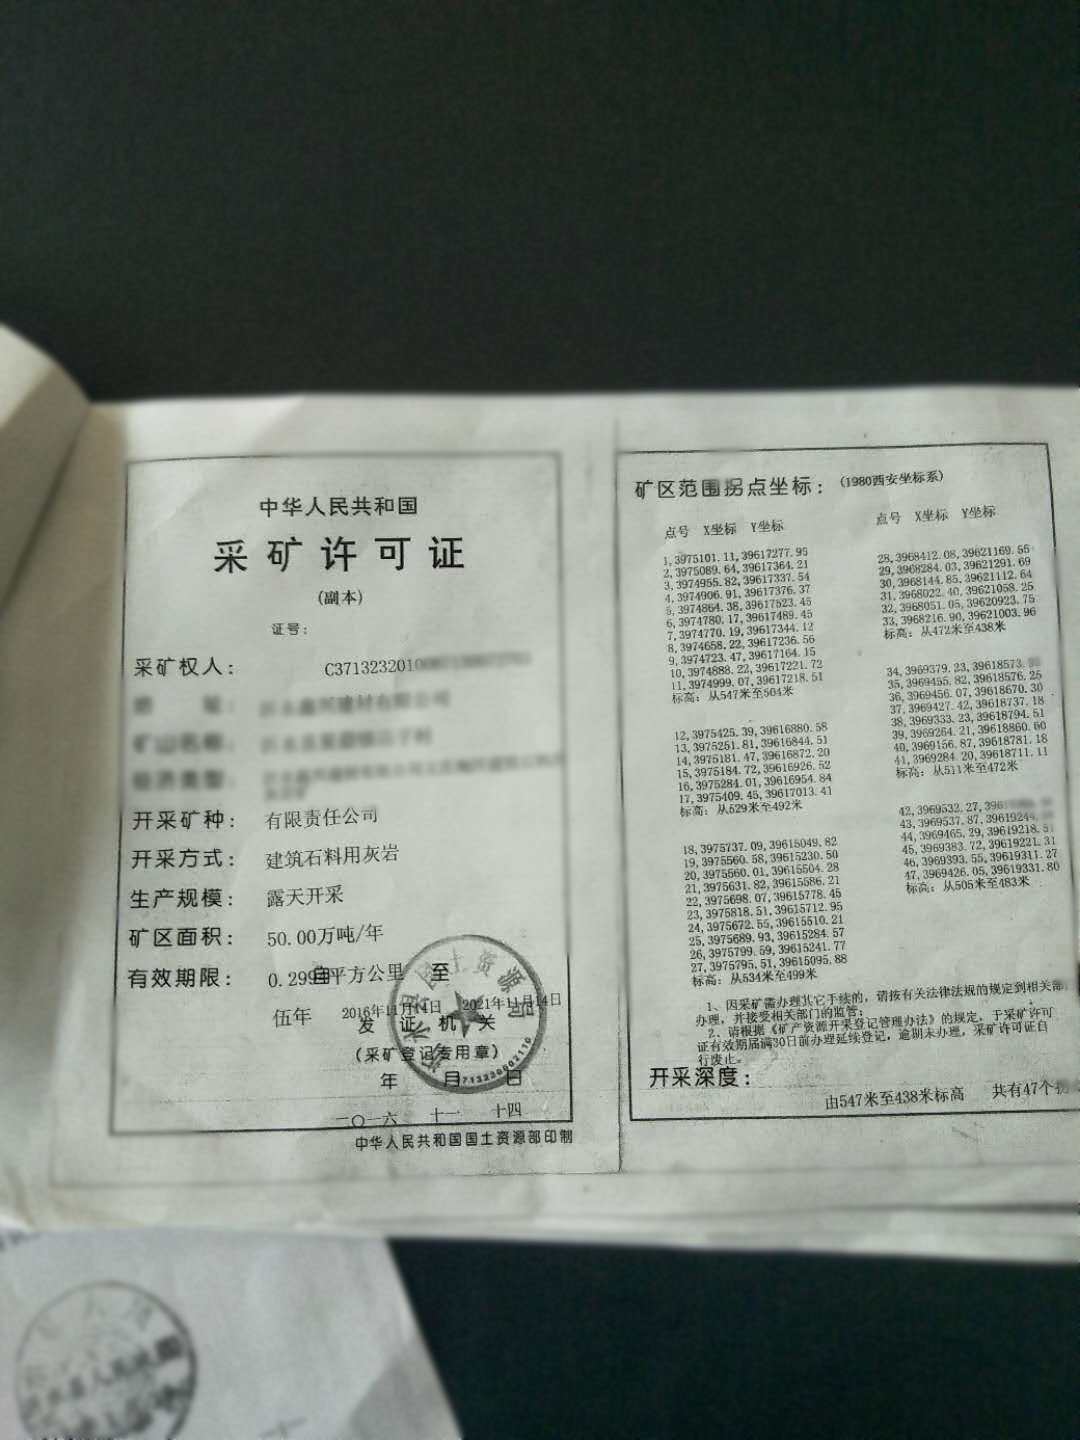 中华人民共和国
采矿许可证
(副本)
证号:
采矿权人: C3713232010
开采矿种: 有限责任公司
开采方式: 建筑石料用灰岩
生产规模: 露天开采
矿区面积: 50.00万吨/年
有效期限: 平方公里 自 至
伍年 2016年11月14日 2021年11月14日
发证机关
(采矿登记专用章)
年 月 日
二〇一六 十一 十四
中华人民共和国国土资源部印制
矿区范围拐点坐标: (1980西安坐标系)
点号 X坐标 Y坐标
1,3975101.11,39617277.95
2,3975089.64,39617364.21
3,3974955.82,39617337.54
4,3974906.91,39617376.37
5,3974864.38,39617523.45
6,3974780.17,39617489.45
7,3974770.19,39617344.12
8,3974658.22,39617236.56
9,3974723.47,39617164.15
10,3974888.22,39617221.72
11,3974999.07,39617218.51
标高: 从547米至504米
12,3975425.39,39616880.58
13,3975251.81,39616844.51
14,3975181.47,39616872.20
15,3975184.72,39616926.52
16,3975284.01,39616954.84
17,3975409.45,39617013.41
标高: 从529米至492米
18,3975737.09,39615049.82
19,3975560.58,39615230.50
20,3975560.01,39615504.28
21,3975631.82,39615586.21
22,3975698.07,39615778.45
23,3975818.51,39615712.95
24,3975672.55,39615510.21
25,3975689.93,39615284.57
26,3975799.59,39615241.77
27,3975795.51,39615095.88
标高: 从534米至499米
点号 X坐标 Y坐标
28,3968412.08,39621169.55
29,3968284.03,39621291.69
30,3968144.85,39621112.64
31,3968022.40,39621058.25
32,3968051.05,39620923.75
33,3968216.90,39621003.96
标高: 从472米至438米
34,3969379.23,39618573.
35,3969455.82,39618576.25
36,3969456.07,39618670.30
37,3969427.42,39618737.18
38,3969333.23,39618794.51
39,3969264.21,39618860.60
40,3969156.87,39618781.18
41,3969284.20,39618711.11
标高: 从511米至472米
42,3969532.27,396
43,3969537.87,39619244.
44,3969465.29,39619218.51
45,3969383.72,39619221.31
46,3969393.55,39619311.27
47,3969426.05,39619331.80
标高: 从505米至483米
1、因采矿需办理其它手续的，请按有关法律法规的规定到相关部
办理，并接受相关部门的监管；
2、请根据《矿产资源开采登记管理办法》的规定，于采矿许可
证有效期届满30日前办理延续登记，逾期未办理，采矿许可证自
行废止。
开采深度:
由547米至438米标高 共有47个拐